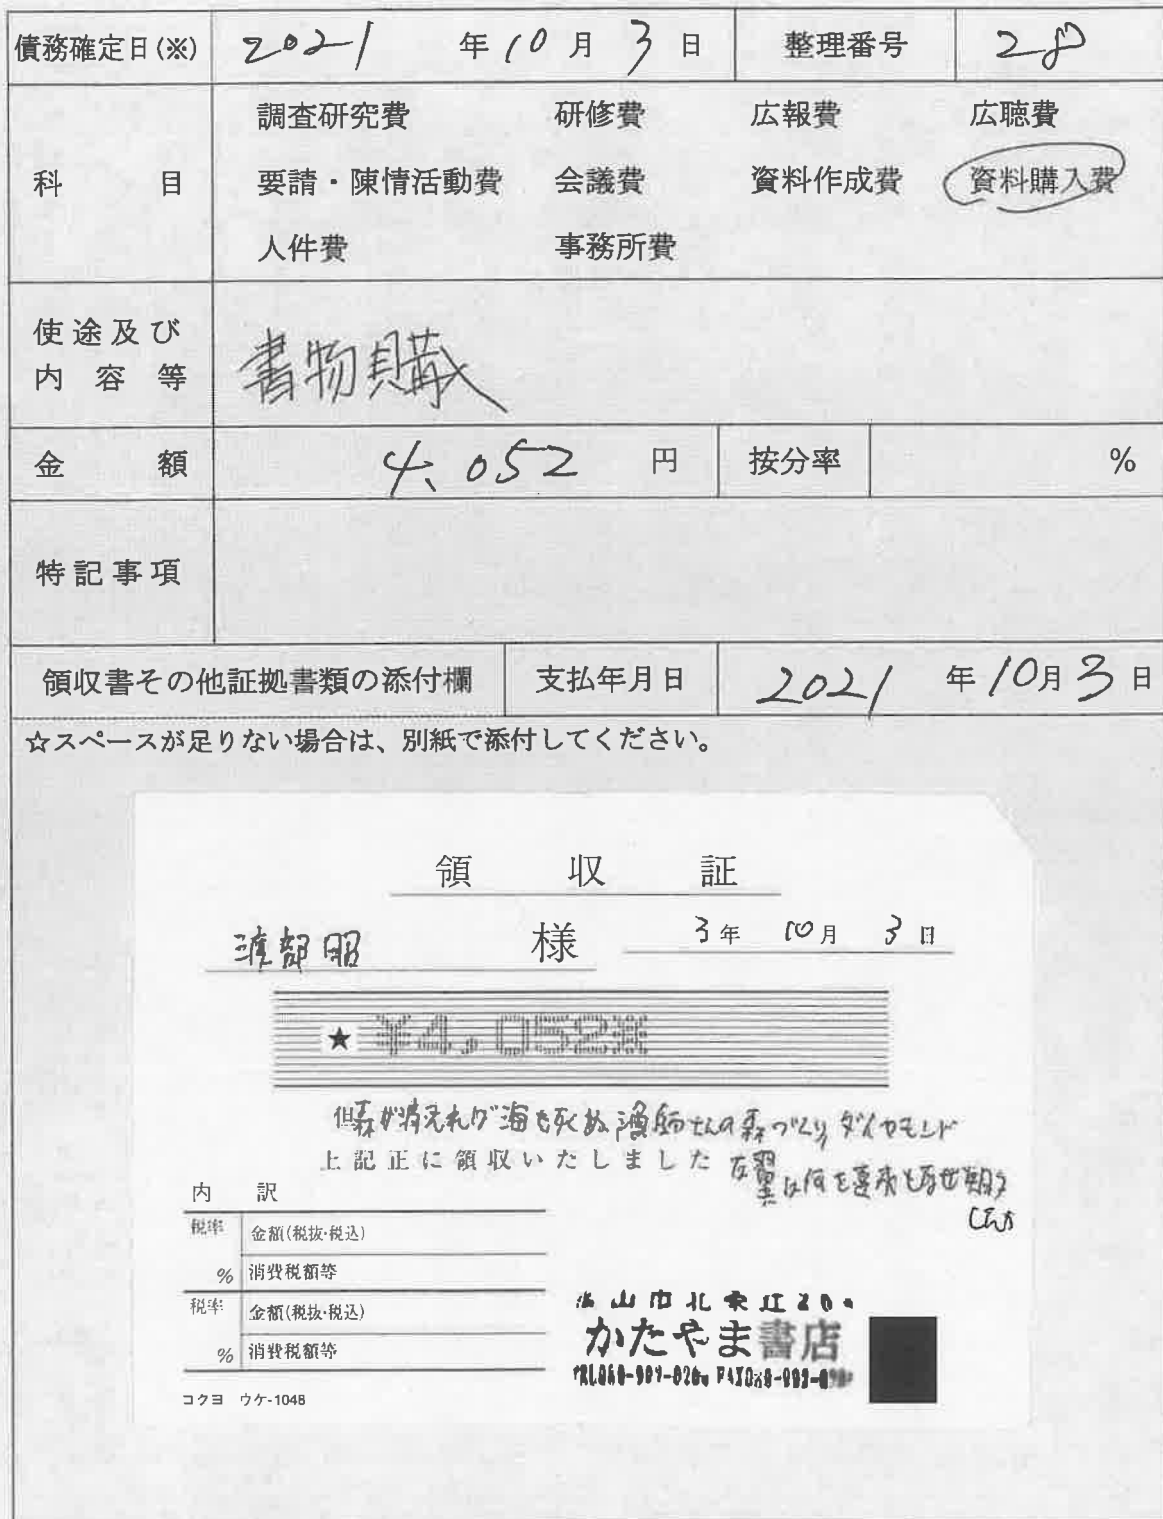 債務確定日(※) 2021 年 10 月 3 日 整理番号 28
調査研究費 研修費 広報費 広聴費
科目 要請・陳情活動費 会議費 資料作成費 資料購入費
人件費 事務所費
使途及び
内容等 書物購入
金額 4,052 円 按分率 %
特記事項
領収書その他証拠書類の添付欄 支払年月日 2021 年 10月 3 日
☆スペースが足りない場合は、別紙で添付してください。
領収証
渡部昭 様 3年 10月 3日
★ ¥4,052※
但 森が消えれば海も死ぬ 漁師さんの森づくり ダイヤモンド
上記正に領収いたしました 左翼は何を
内訳
税率 金額(税抜・税込)
% 消費税額等
税率 金額(税抜・税込)
% 消費税額等
山市北
かたやま書店
コクヨ ウケ-1048